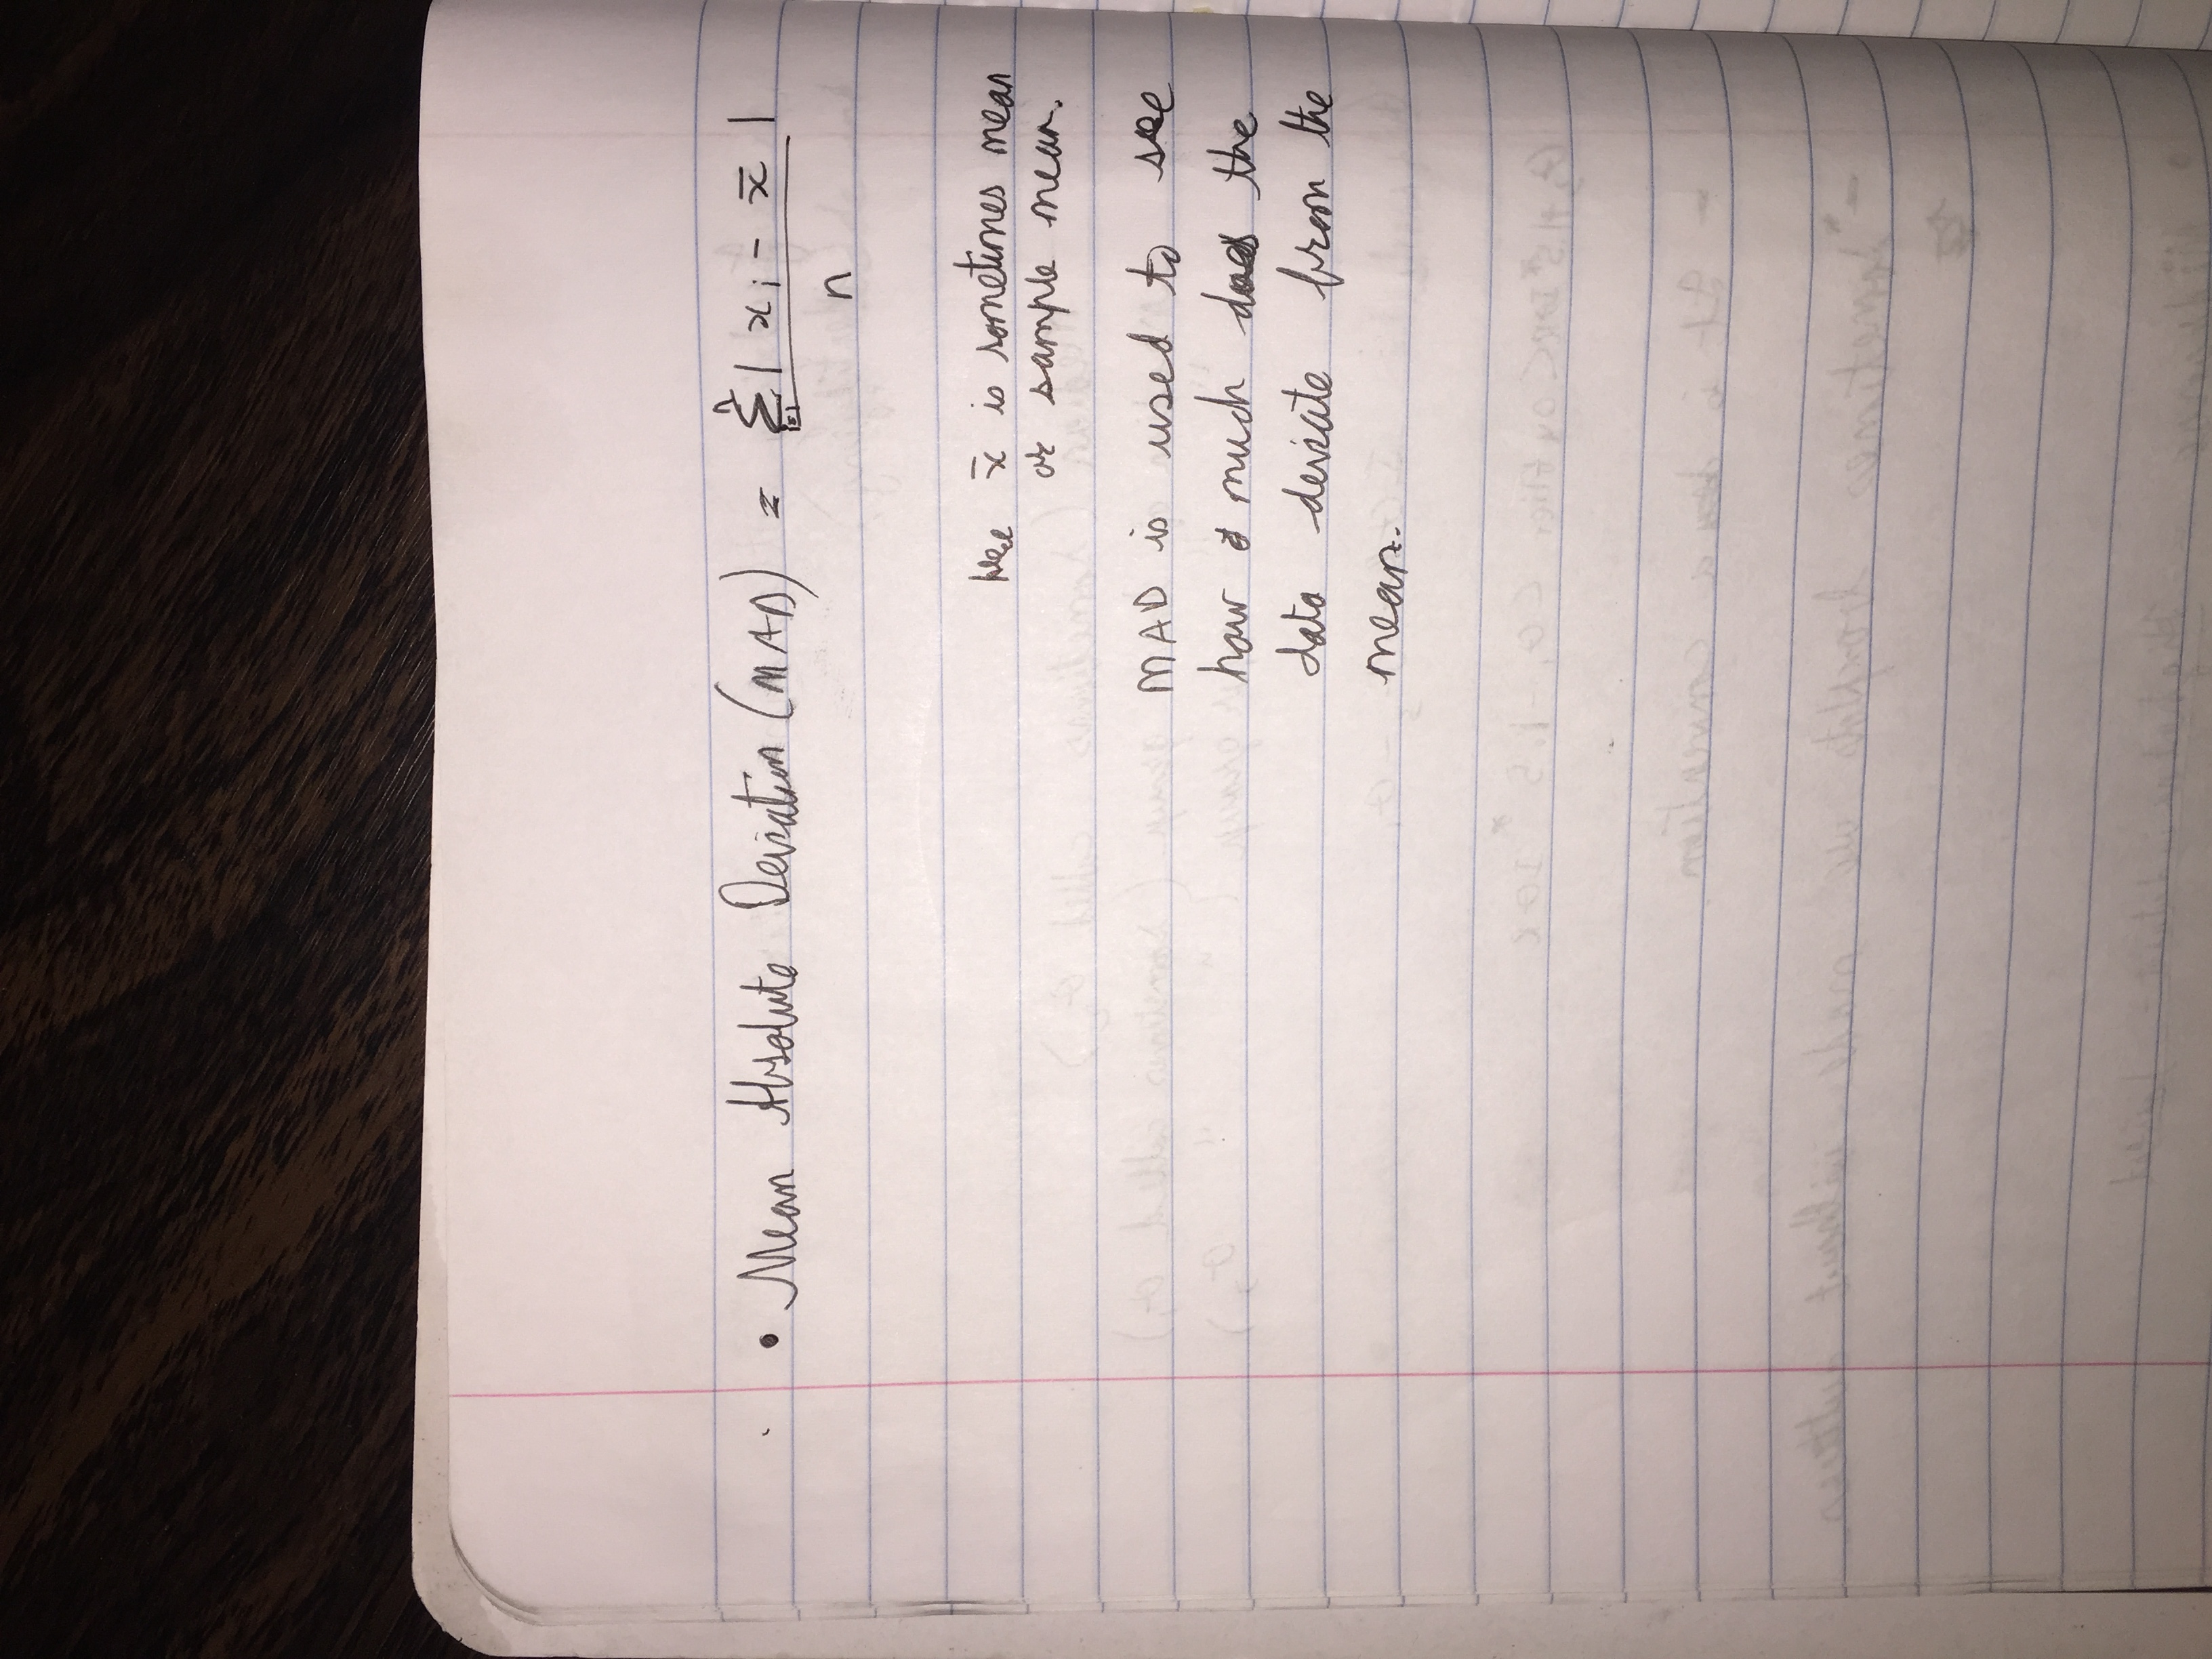 • Mean Absolute Deviation (MAD) = ∑ⁿᵢ₌₁ | xᵢ - x̄ | / n
Here x̄ is sometimes mean
or sample mean.
MAD is used to see
how much does the
data deviate from the
mean.